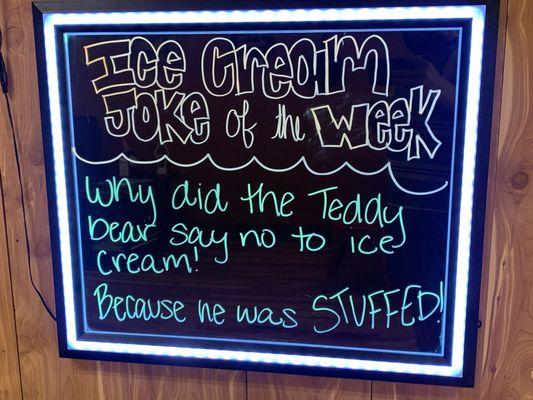 Ice Cream
Joke of the Week
Why did the Teddy
bear say no to ice
cream!
Because he was STUFFED!